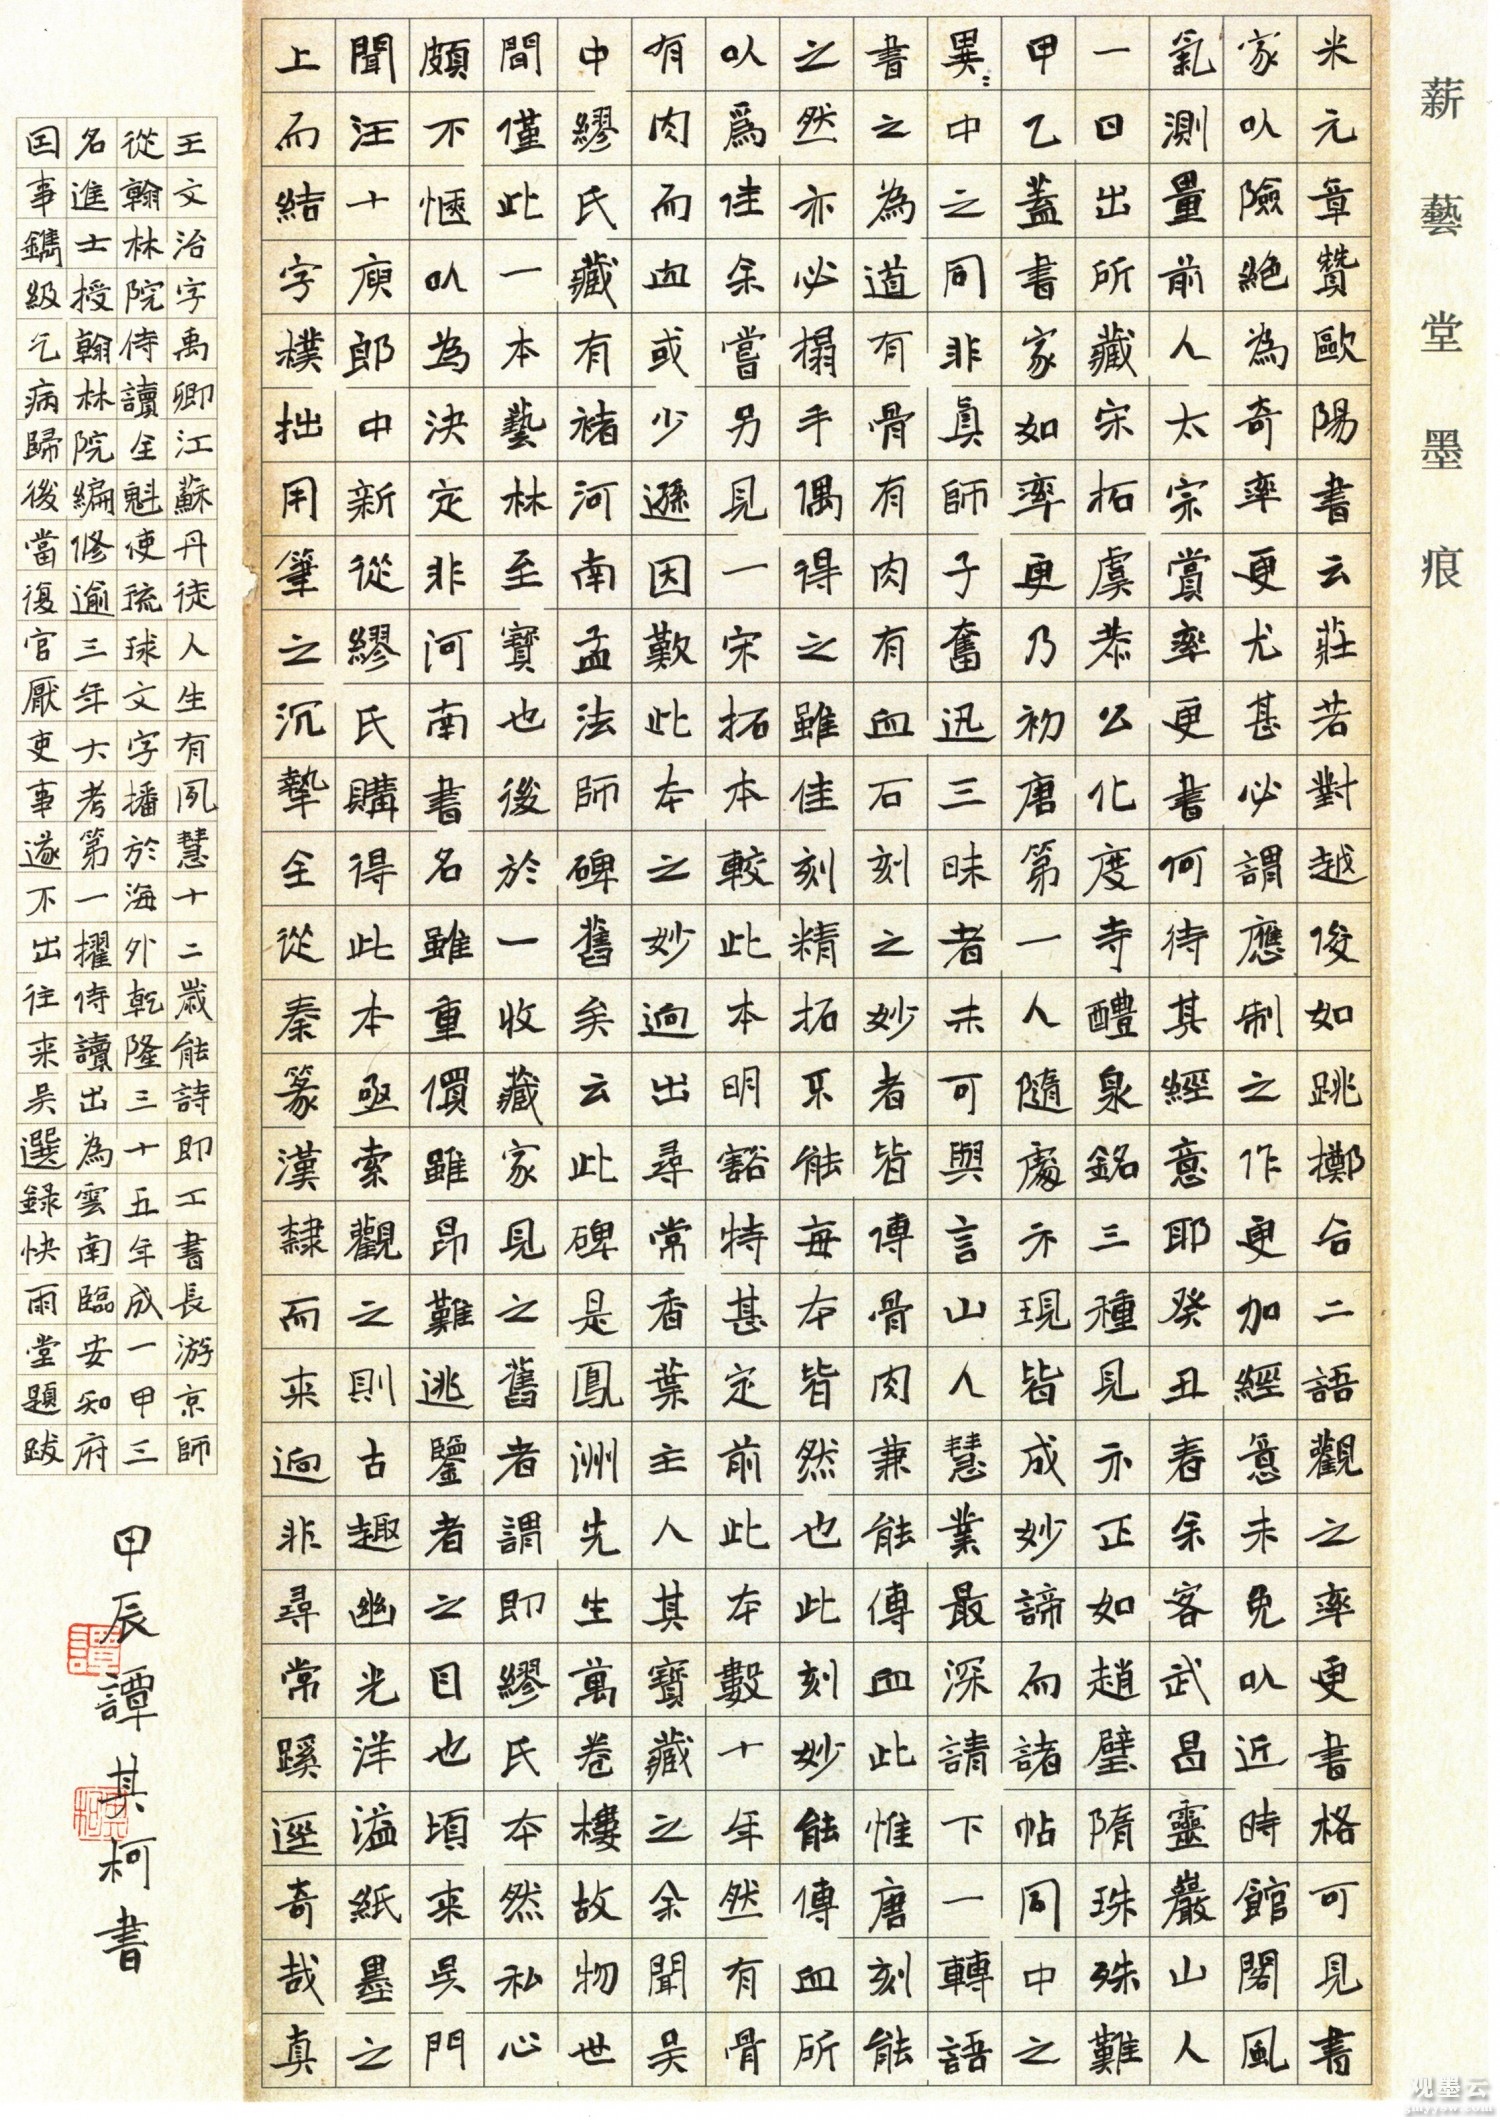 薪藝堂墨痕
米元章贊歐陽書云莊若對越俊如跳擲合二語觀之率更書格可見書
家以險絕為奇率更尤甚必謂應制之作更加經意未免以近時館閣風
氣測量前人太宗賞率更書何待其經意耶癸丑春余客武昌靈巖山人
一日出所藏宋拓虞恭公化度寺醴泉銘三種見示正如趙璧隋珠殊難
甲乙蓋書家如率更乃初唐第一人隨處示現皆成妙諦而諸帖同中之
異〻中之同非真師子奮迅三昧者未可與言山人慧業最深請下一轉語
書之為道有骨有肉有血石刻之妙者皆傳骨肉兼能傳血此惟唐刻能
之然亦必搨手偶得之雖佳刻精拓不能每本皆然也此刻妙能傳血所
以為佳余嘗另見一宋拓本較此本明豁特甚定前此本數十年然有骨
有肉而血或少遜因歎此本之妙迥出尋常香葉主人其寶藏之余聞吳
中繆氏藏有褚河南孟法師碑舊矣云此碑是鳳洲先生萬卷樓故物世
間僅此一本藝林至寶也後於一收藏家見之舊者謂即繆氏本然私心
頗不愜以為決定非河南書名雖重價雖昂難逃鑒者之目也頃來吳門
聞汪十庾郎中新從繆氏購得此本亟索觀之則古趣幽光洋溢紙墨之
上而結字樸拙用筆之沉摯全從秦篆漢隸而來迥非尋常蹊逕奇哉真
王文治字禹卿江蘇丹徒人生有夙慧十二歲能詩即工書長游京師
從翰林院侍讀全魁使琉球文字播於海外乾隆三十五年成一甲三
名進士授翰林院編修逾三年大考第一擢侍讀出為雲南臨安知府
因事鐫級乞病歸後當復官厭吏事遂不出往來吳選錄快雨堂題跋
甲辰譚其柯書
譚
其柯
观墨云